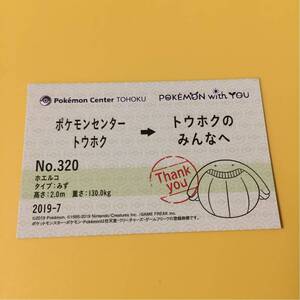 Pokémon Center TOHOKU
POKÉMON with YOU
ポケモンセンター
トウホク
トウホクの
みんなへ
No.320
ホエルコ
タイプ:みず
高さ:2.0m 重さ:130.0kg
Thank
you
2019-7
©2019 Pokémon. ©1995-2019 Nintendo/Creatures Inc./GAME FREAK inc.
ポケットモンスター・ポケモン・Pokémonは任天堂・クリーチャーズ・ゲームフリークの登録商標です。